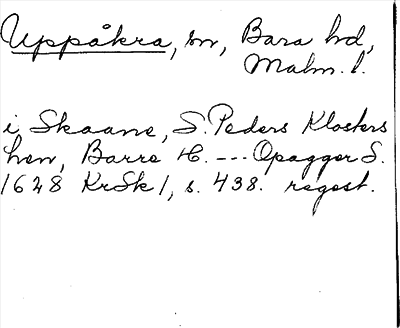 Uppåkra, sn, Bara hd,
Malm. l.
i Skaane, S. Peders Klosters
hen, Barre H. --- Opagger S.
1628 KrSk 1, s. 438. regest.